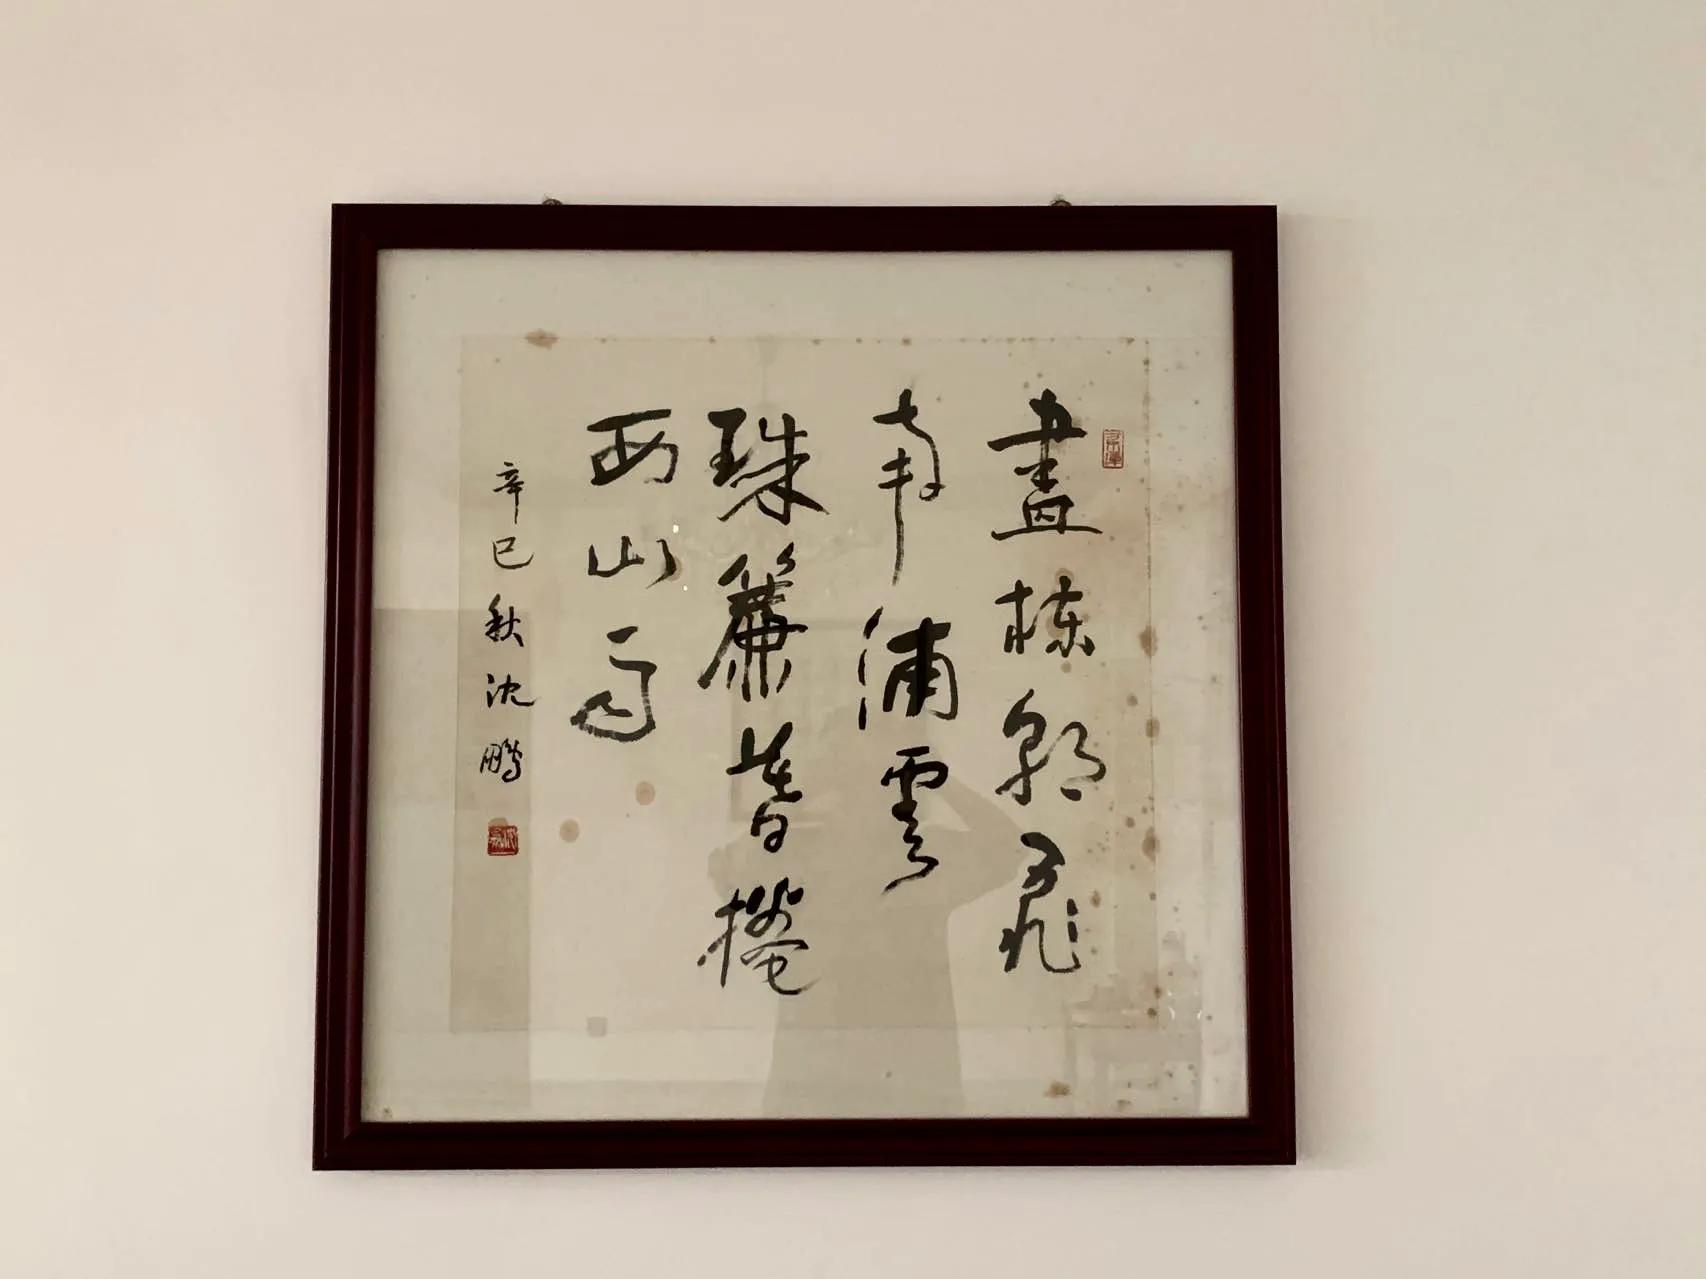 畫棟朝飛
南浦雲
珠簾暮捲
西山雨
辛巳秋沈鵬